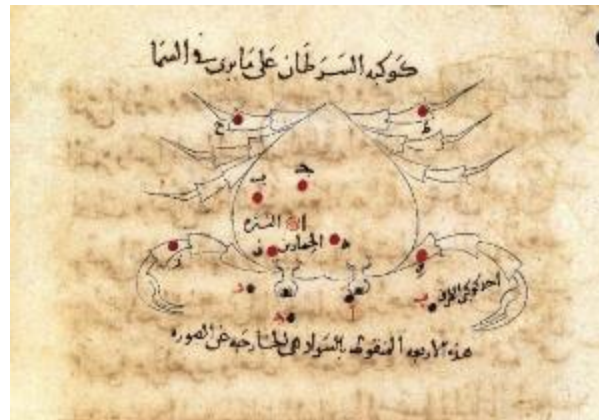 كوكبه السرطان على ما يرى في السما
ح ط
ب ج
ا النثره
الحمارين ه
ز و
احد كوكبى الطرف
د ا ب
ه
هذه الاربعه المنقوطه بالسواد هى الخارجه عن الصوره